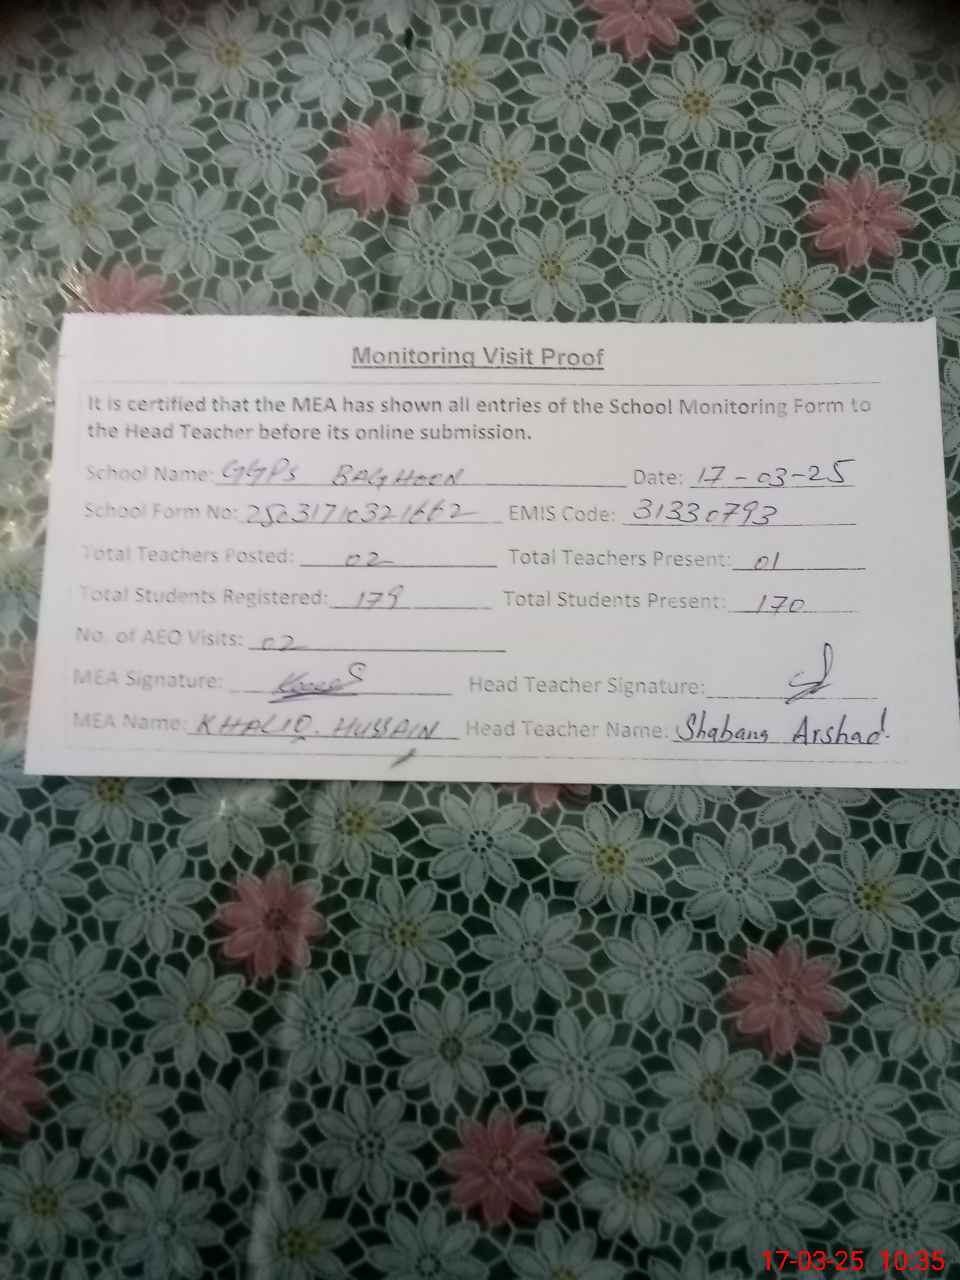 Monitoring Visit Proof
It is certified that the MEA has shown all entries of the School Monitoring Form to
the Head Teacher before its online submission.
School Name: GGPS BAGHOON Date: 17-03-25
School Form No: 25031710321662 EMIS Code: 31330793
Total Teachers Posted: 02 Total Teachers Present: 01
Total Students Registered: 179 Total Students Present: 170
No. of AEO Visits: 02
MEA Signature: Head Teacher Signature:
MEA Name: KHALIQ. HUSSAIN Head Teacher Name: Shabana Arshad.
17-03-25 10:35